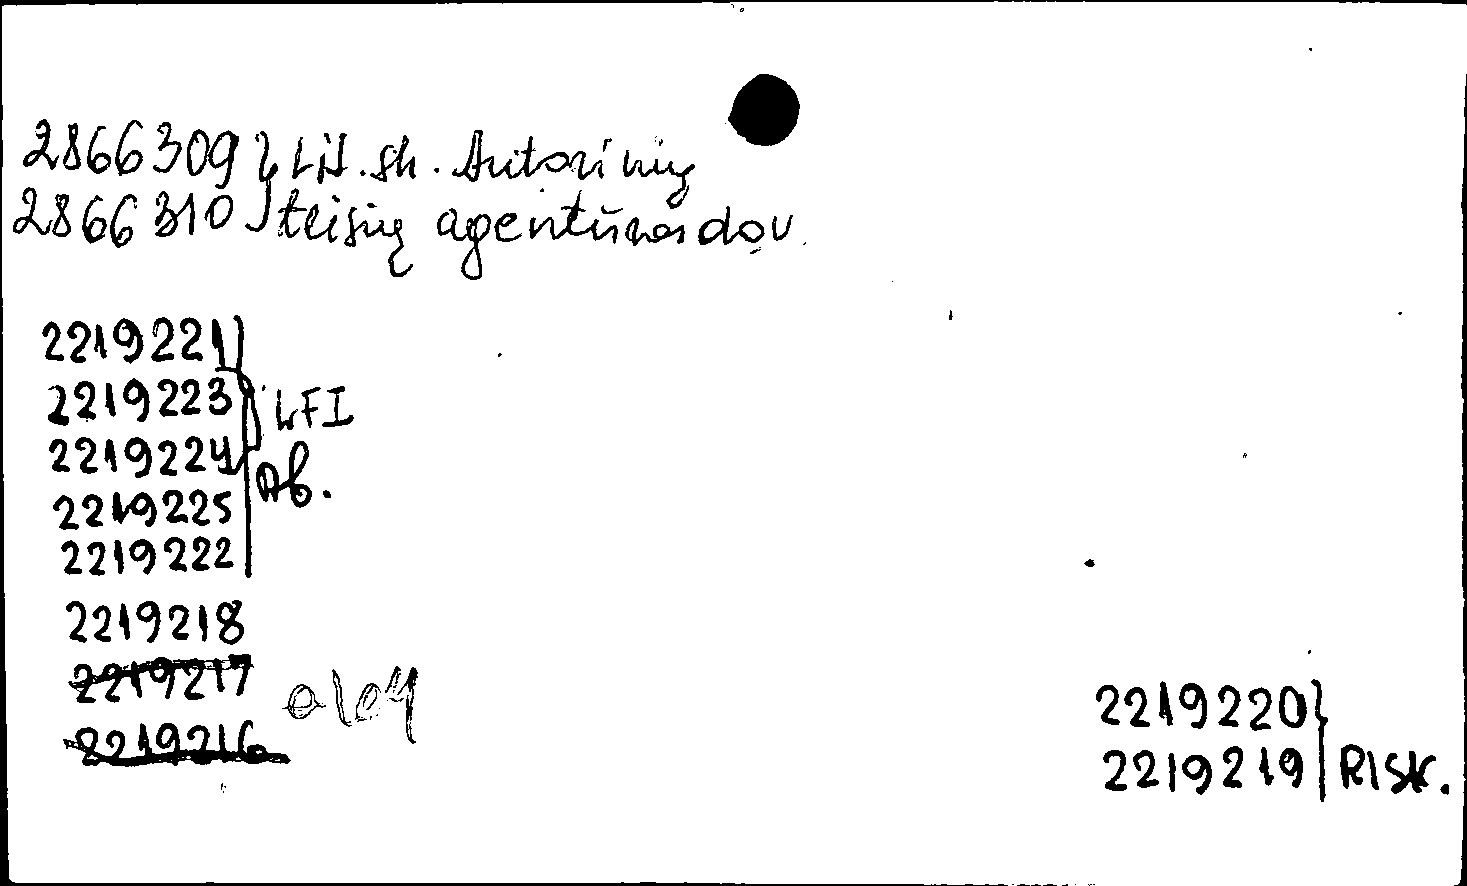 2866309 } Lit. sk. Autorinių
2866310 } teisių agentūros dov.
2219221
2219223
2219224
LFI
Ab.
2219225
2219222
2219218
2219217
2219216
2219220
2219219 Risk.